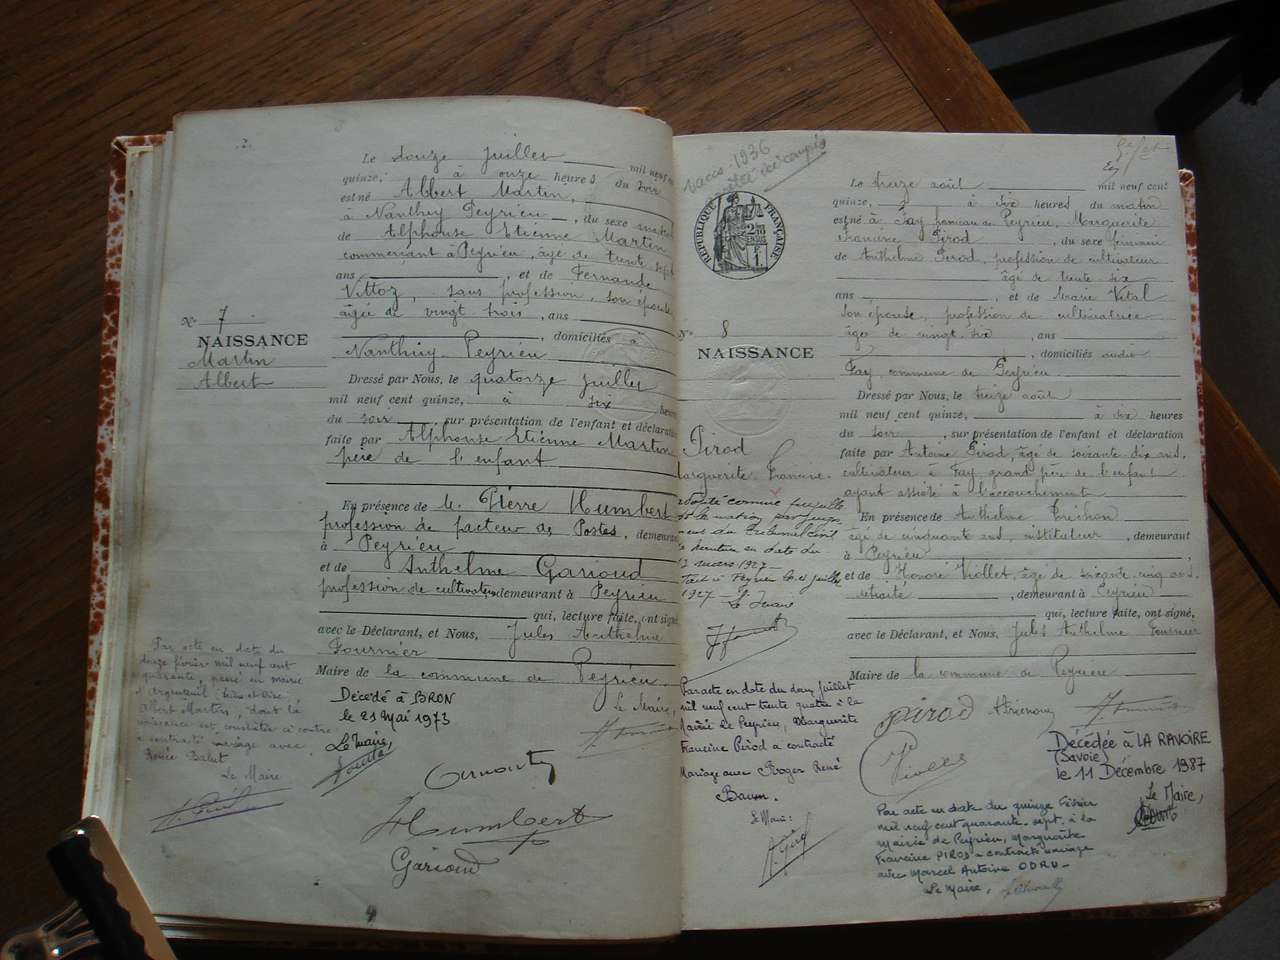 2.
Le douze juillet mil neuf cent
quinze, à onze heures du soir
est né Albert Martin,
à Nanthuy Peyrieu, du sexe masculin
de Alphonse Etienne Martin
commerçant à Peyrieu, âgé de trente sept
ans, et de Fernande
Vittoz, sans profession, son épouse
âgée de vingt trois, ans
, domiciliés à
Nanthuy Peyrieu
Dressé par Nous, le quatorze juillet
mil neuf cent quinze, à six heures
du soir, sur présentation de l'enfant et déclaration
faite par Alphonse Etienne Martin
père de l'enfant
En présence de M. Pierre Humbert
profession de facteur des Postes, demeurant
à Peyrieu
et de Anthelme Garioud
profession de cultivateur demeurant à Peyrieu
qui, lecture faite, ont signé,
avec le Déclarant, et Nous, Jules Anthelme
Fournier
Maire de la commune de Peyrieu
Le Maire,
No 7
NAISSANCE
Martin
Albert
Par acte en date du
douze février mil neuf cent
quarante, passé en mairie
d'Argenteuil (Seine et Oise
Albert Martin, dont la
naissance est constatée ci contre
a contracté mariage avec
Renée Balut
Le Maire
Décédé à BRON
le 21 Mai 1973
Le Maire,
Humbert
Garioud
vacc. 1936
RÉPUBLIQUE FRANÇAISE
No 8
NAISSANCE
Pirod
Marguerite Francine
adoptée comme pupille
par la nation par juge
ment du Tribunal Civil
en date du
mars 1927
Peyrieu le juillet
1927
Le Maire
Par acte en date du douze juillet
mil neuf cent trente quatre à la
Mairie de Peyrieu, Marguerite
Francine Pirod a contracté
Mariage avec Roger René
Baum.
Le Maire:
Le treize août mil neuf cent
quinze, à six heures du matin
est né à Fay hameau de Peyrieu, Marguerite
Francine Pirod, du sexe féminin
de Anthelme Pirod, profession de cultivateur
âgé de trente six
ans, et de Marie Vital
son épouse, profession de cultivatrice
âgée de vingt six, ans
, domiciliés audit
Fay commune de Peyrieu
Dressé par Nous, le treize août
mil neuf cent quinze, à six heures
du soir, sur présentation de l'enfant et déclaration
faite par Antoine Pirod, âgé de soixante dix ans,
cultivateur à Fay, grand père de l'enfant
ayant assisté à l'accouchement
En présence de Anthelme Tréchon
âgé de cinquante ans, instituteur, demeurant
à Peyrieu
et de Honoré Viollet, âgé de soixante cinq ans
retraité, demeurant à Peyrieu
qui, lecture faite, ont signé,
avec le Déclarant, et Nous, Jules Anthelme Fournier
Maire de la commune de Peyrieu
Pirod
Viollet
Décédée à LA RAVOIRE
(Savoie)
le 11 Décembre 1987
Le Maire,
Par acte en date du quinze Février
mil neuf cent quarante sept, à la
Mairie de Peyrieu, Marguerite
Francine PIROD a contracté mariage
avec Marcel Antoine ODRU
Le Maire,